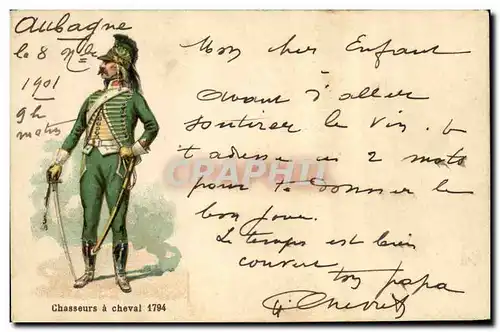 Aubagne
le 8 9bre
1901
9h
matin
Mon cher Enfant
avant d'aller
soutirer le vin. je
t'adresse un 2 mots
pour te donner le
bon jour.
Le temps est bien
couvert
ton papa
CPRPHIL
Chasseurs à cheval 1794